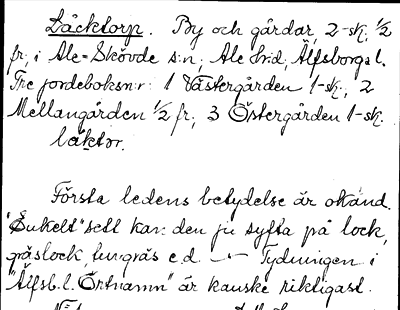 Läcktorp. By och gårdar, 2 sk. 1/2
fr. i Ale-Skövde s:n, Ale h:d, Älfsborgs l.
Tre jordeboksn:r: 1 Västergården 1 sk., 2
Mellangården 1/2 fr., 3 Östergården 1 sk.
läktor.
Första ledens betydelse är okänd.
"Enkelt" sett kan den ju syfta på lock,
gräslock, tungräs e.d. — Tydningen i
"Älfsb. l. Ortnamn" är kanske riktigast.